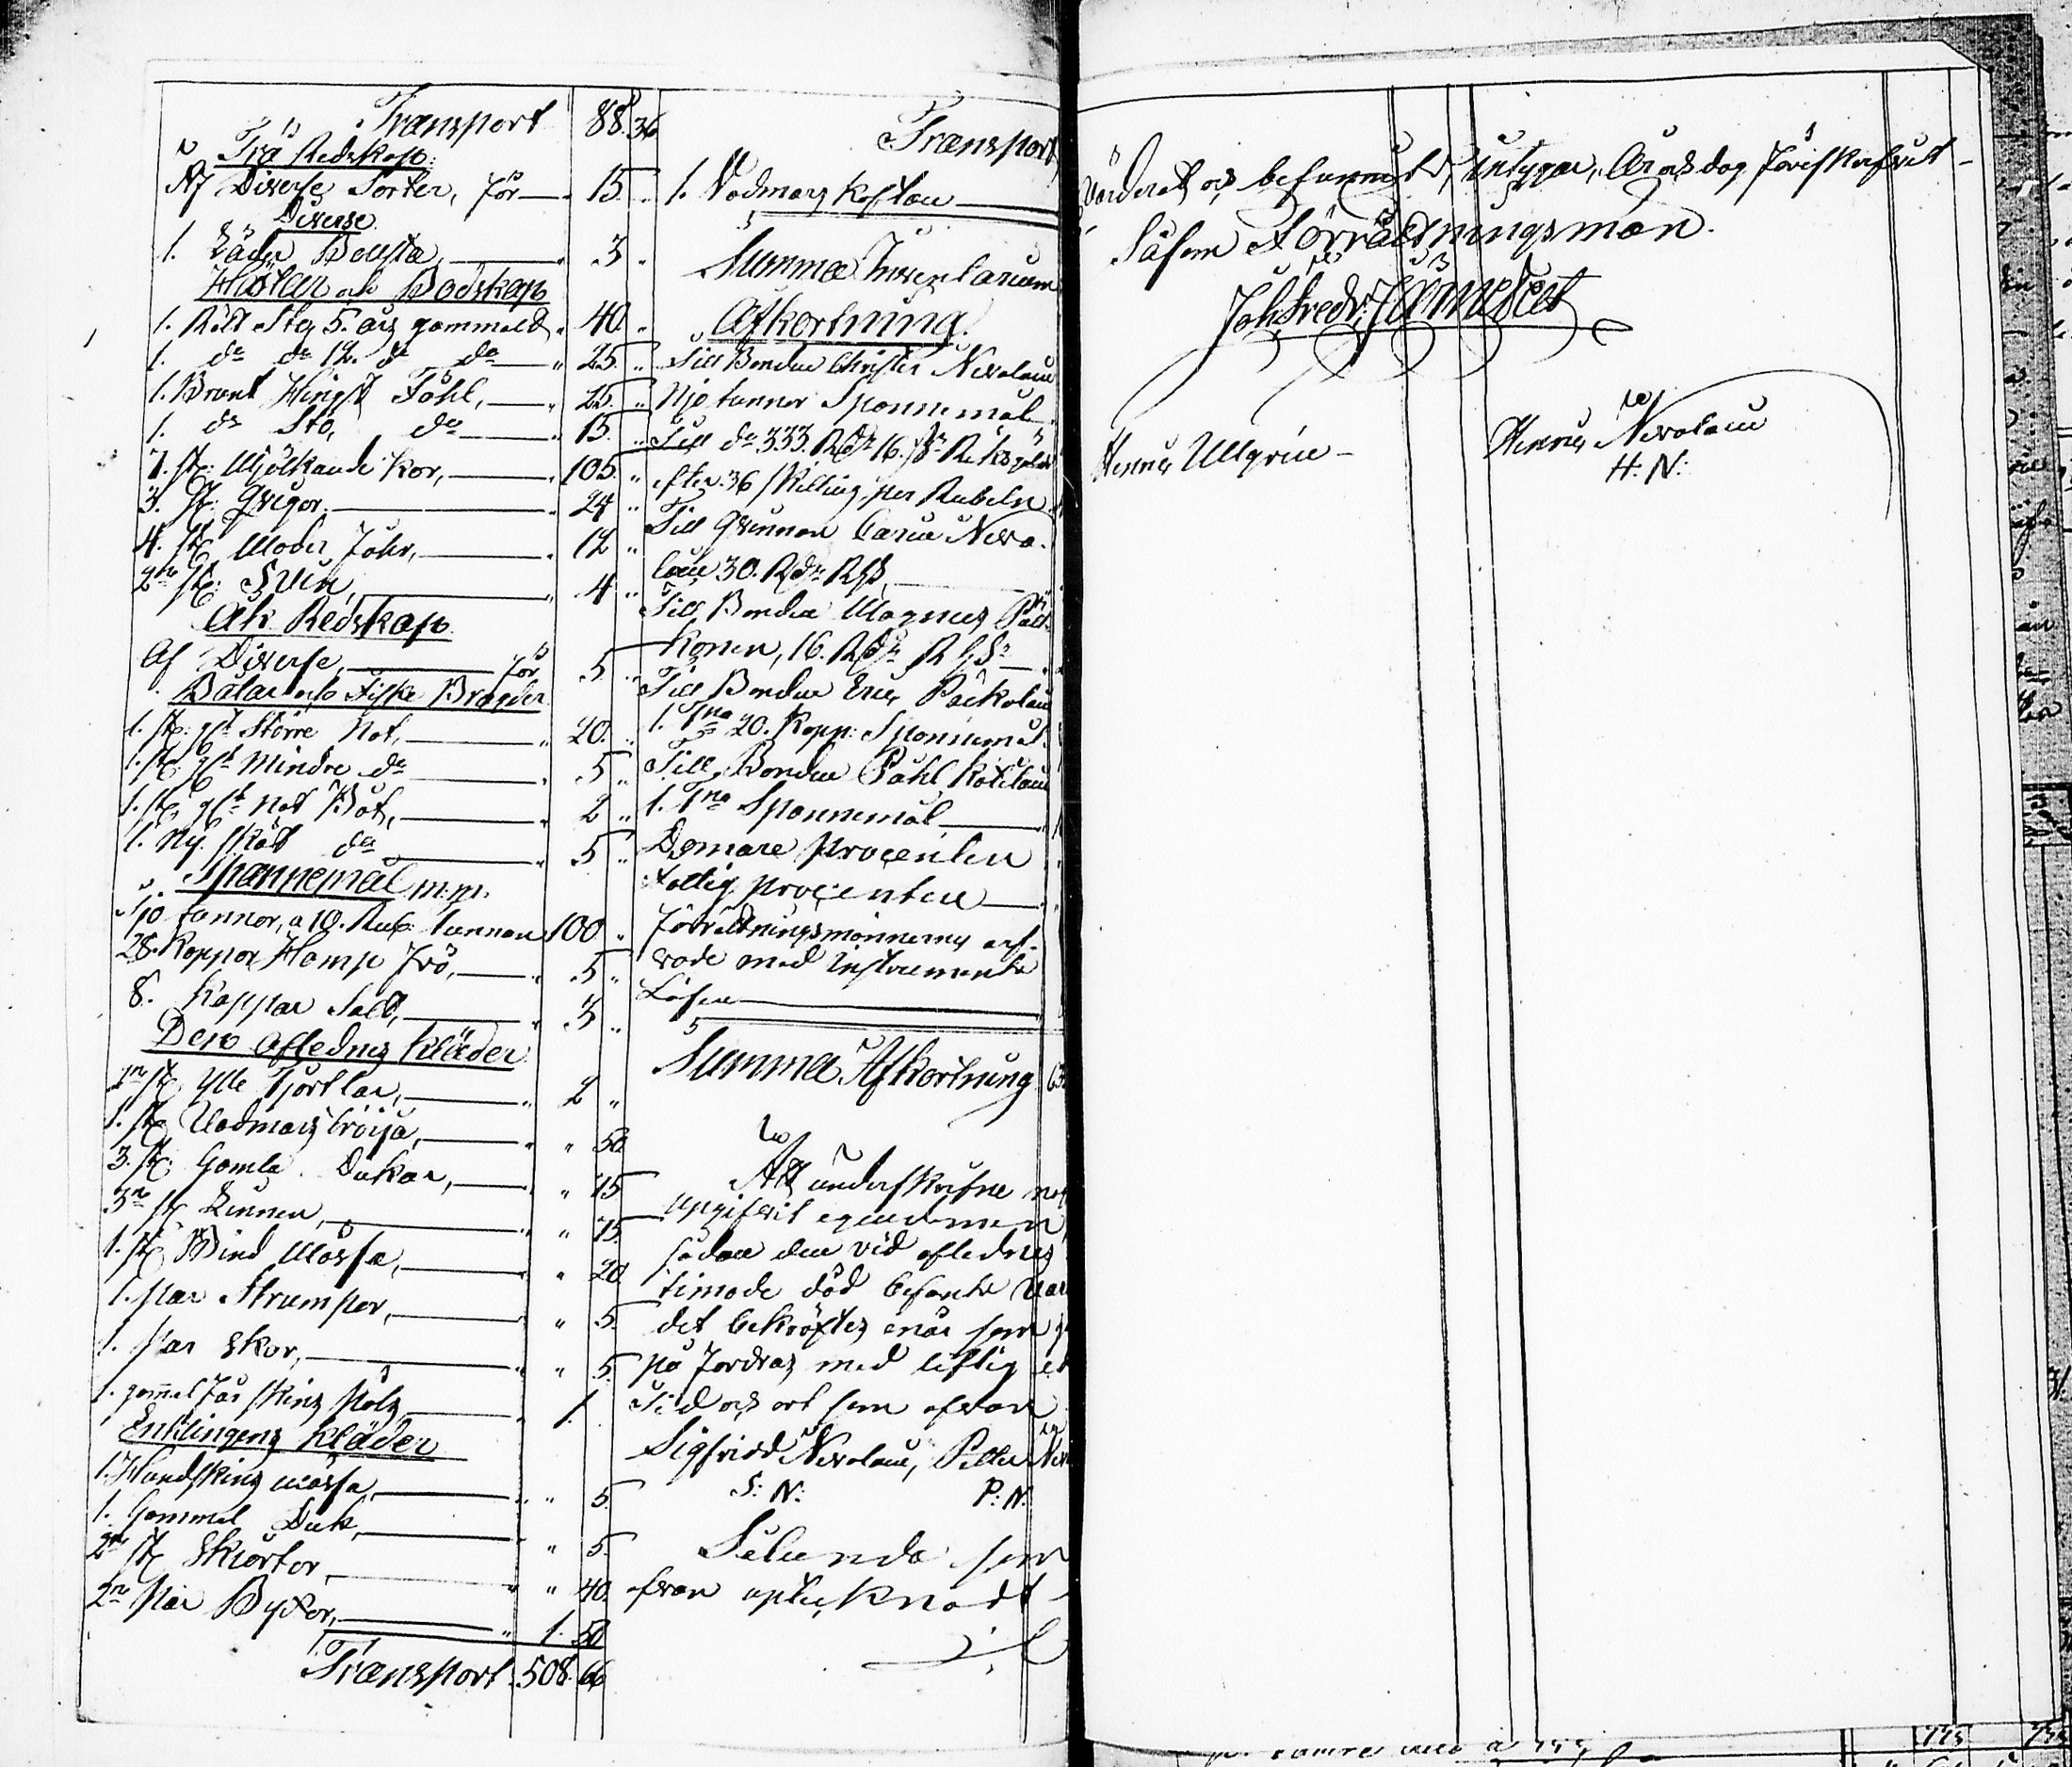 Transport 88. 36
Trä Redskap:
Af Diverse Sorter, för 15. "
Diverse
1. Läder Bousta, 3 "
Hästar och Bodskap
1. Rödt Sto, 5. års gammalt, 40. "
1. do do 12. do do 25. "
1. Brunt Hingst Fåhl, 25. "
1. do Sto, do 15. "
7. st: Mjölkande Kor, 105. "
3. st: Qvigor, 24 "
4. st: Moder Fåhr, 12 "
2ne st: Svin, 4 "
Åk Redskap
Af Diverse, för 5 "
Båtar och Fiske Bragder
1. st: gl: Större Not, 20. "
1. st: gl: Mindre do 5 "
1. st: gl: Not Båt, 2 "
1. Ny. do 5 "
Spannemål m:m:
Tjo tunnor, a 10. Rub: tunnan 100 "
28. Kappar Hamp frö, 5 "
8. Kappar Salt, 3 "
Den aflednes Kläder
2ne st: Ylle Tjortlar, 2 "
1. st: Vadmars tröija, " 50
3. st: Gamla Dukar, " 75
3ne st: Linnen, " 75
1. st: Bind Mössa, " 20
1. par Strumpor, " 5.
1. par Skor, " 5.
1. gammal Får skins päls, 1.
Enklingens Kläder
1. Hundskins mössa, " 5.
1. Gammal Duk, " 5.
2ne st: Skiortor, " 40.
2ne par Byxor, 1. 50
Transport 508. 66
Transport
1. Vadmars Kaftan
Summa Inventarium
Afkortning
Till Bonden Christer Nevalain
Nije tunnor Spannemål
Till do 333. Rdr 16. sk: Riksgälds
efter 36 skilling per Rubeln
Till Qvinnan Carin Neva-
lain 30. Rdr RGds
Till Bonden Magnus
konen, 16. Rdr RGds
Till Bonden Eric
1. Tna 20. Kapp: Spannemål
Till Bonden Påhl Kotilain
1. Tna Spannemål
Domare procenten
Fattig procenten
Förrättningsmännernes arf-
vode med Instrumente
Lösen
Summa Afkortning 63
Att underskrifne
upgifvit egendomen
sådan den vid aflednes
timade död befants var
det bekräftes änär som
på fordras med liflig ed
Tid och ort som ofvan
Sigfrid Nevalain, Petter Nev
S: N: P: N:
Sålunda som
ofvan uptecknadt
Värderat och befunnit, intygar, År och dag föreskrefvit
Såsom Förrättningsman.
Joh. Fredr:
Henric Ullgrén
Henric Nevalain
H: N: